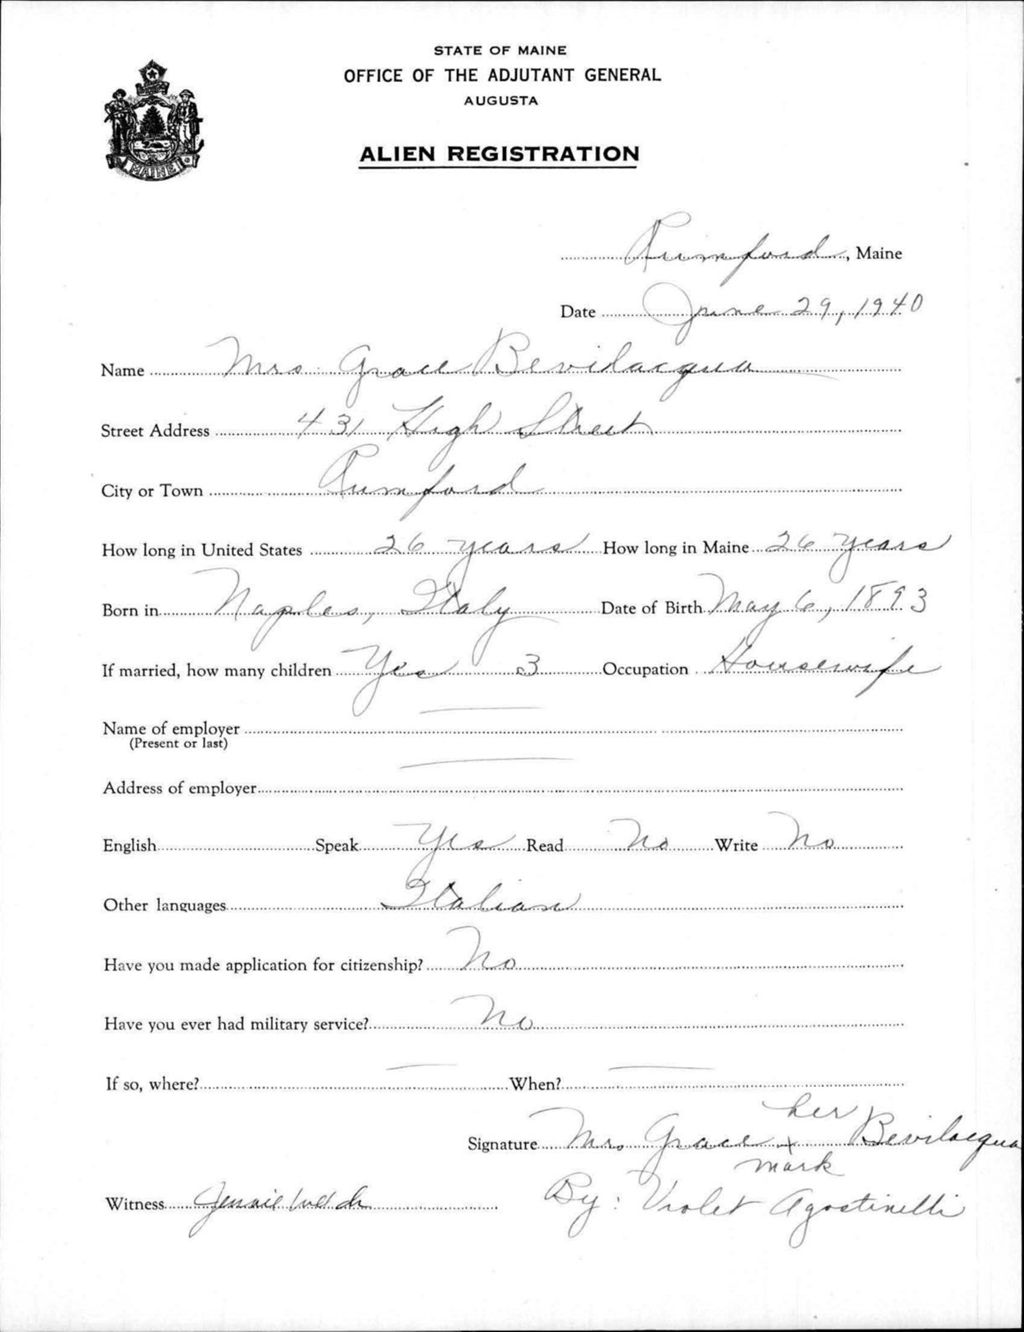 STATE OF MAINE
OFFICE OF THE ADJUTANT GENERAL
AUGUSTA
ALIEN REGISTRATION
MAINE
Rumford, Maine
Date June 29, 1940
Name Mrs. Grace Bevilacqua
Street Address 431 High Street
City or Town Rumford
How long in United States 26 years How long in Maine 26 years
Born in Naples, Italy Date of Birth May 6, 1893
If married, how many children Yes 3 Occupation Housewife
Name of employer
(Present or last)
Address of employer
English Speak Yes Read No Write No
Other languages Italian
Have you made application for citizenship? No
Have you ever had military service? No
If so, where? When?
her
Signature Mrs. Grace x Bevilacqua
mark
Witness Jennie Welch By: Violet Agostinelli